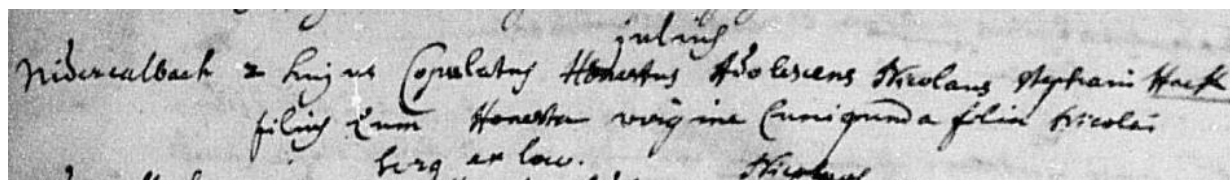 julius
Niderealbach 2 hujus Copulatus Honestus Adolescens Nicolaus stephani
filius Cum Honesta virgine Cunigunda filia Nicolai
Nicolaus